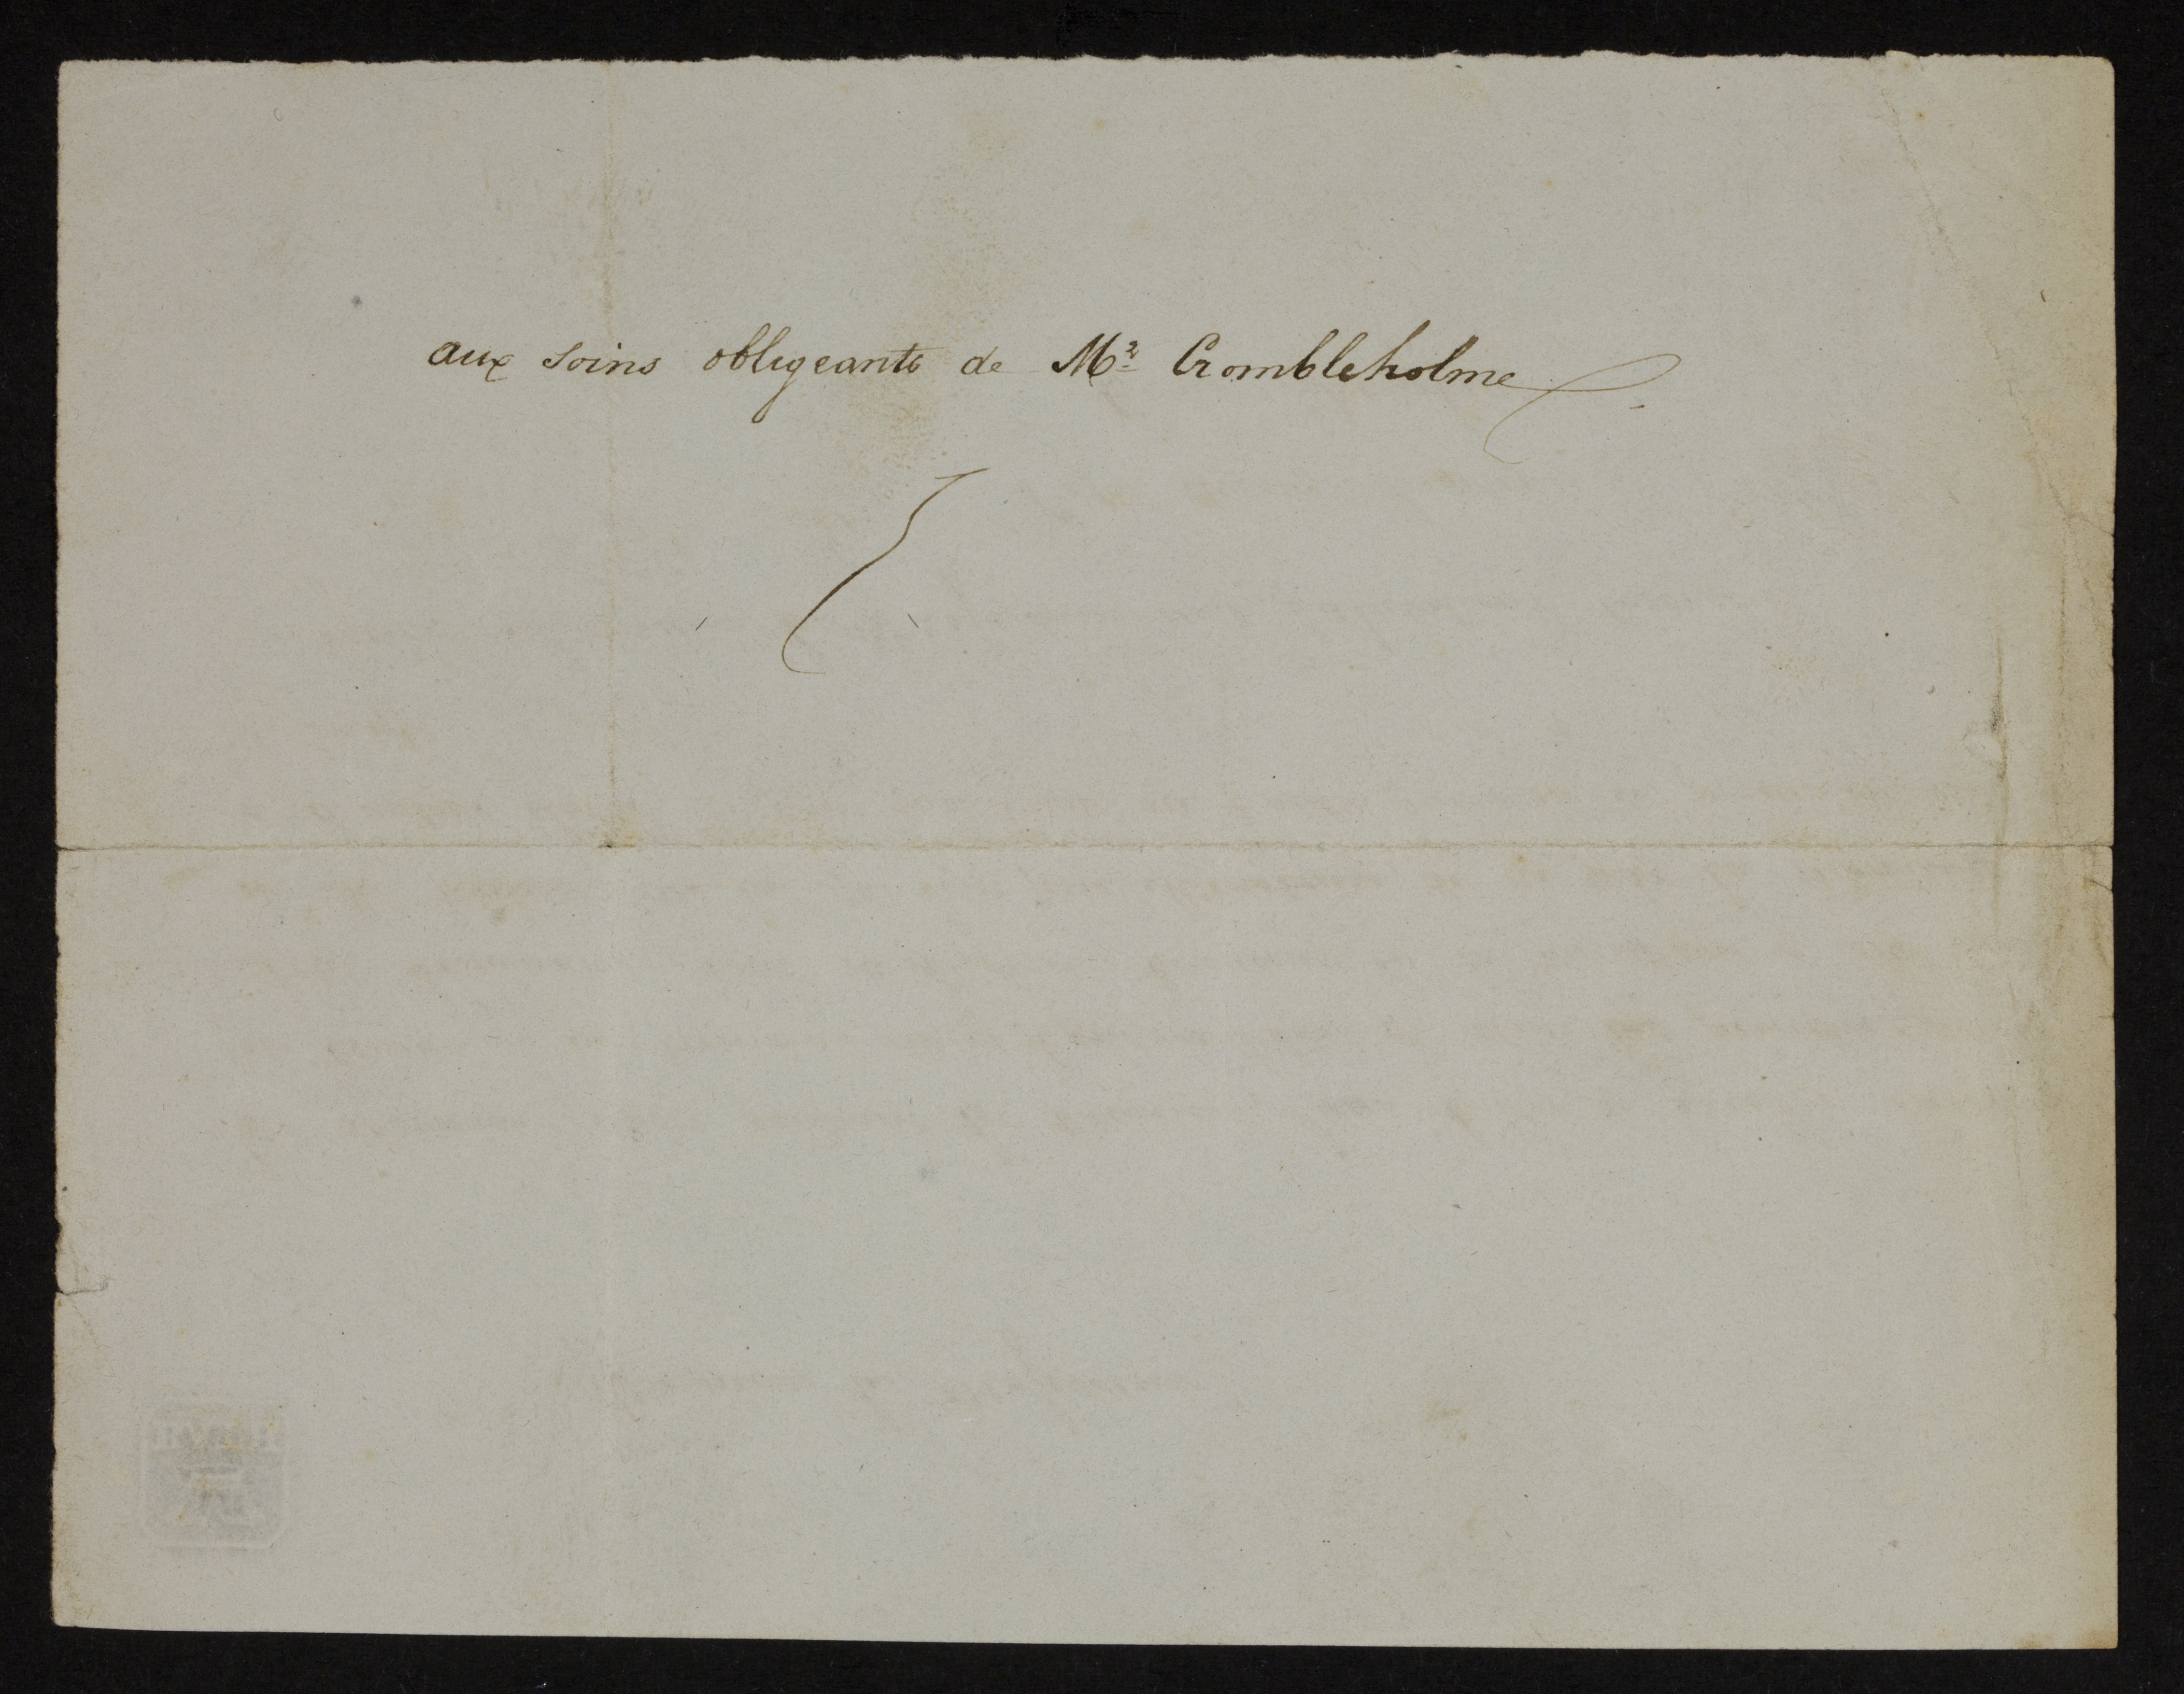 aux soins obligeants de Mr Crombleholme